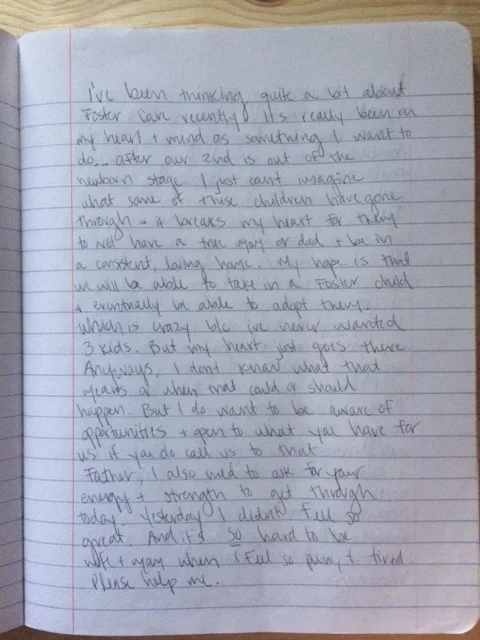 I've been thinking quite a lot about
Foster Care recently. It's really been on
my heart + mind as something I want to
do... after our 2nd is out of the
newborn stage. I just can't imagine
what some of these children have gone
through - it breaks my heart for them
to not have a true mom or dad + be in
a consistent, loving home. My hope is that
we will be able to take in a Foster child
+ eventually be able to adopt them.
Which is crazy b/c I've never wanted
3 kids. But my heart just goes there.
Anyways, I don't know what that
means or when that could or should
happen. But I do want to be aware of
opportunities + open to what you have for
us if you do call us to that.
Father, I also need to ask for your
energy + strength to get through
today. Yesterday I didn't feel so
great. And it's so hard to be
wife + mom when I feel so puny + tired.
Please help me.